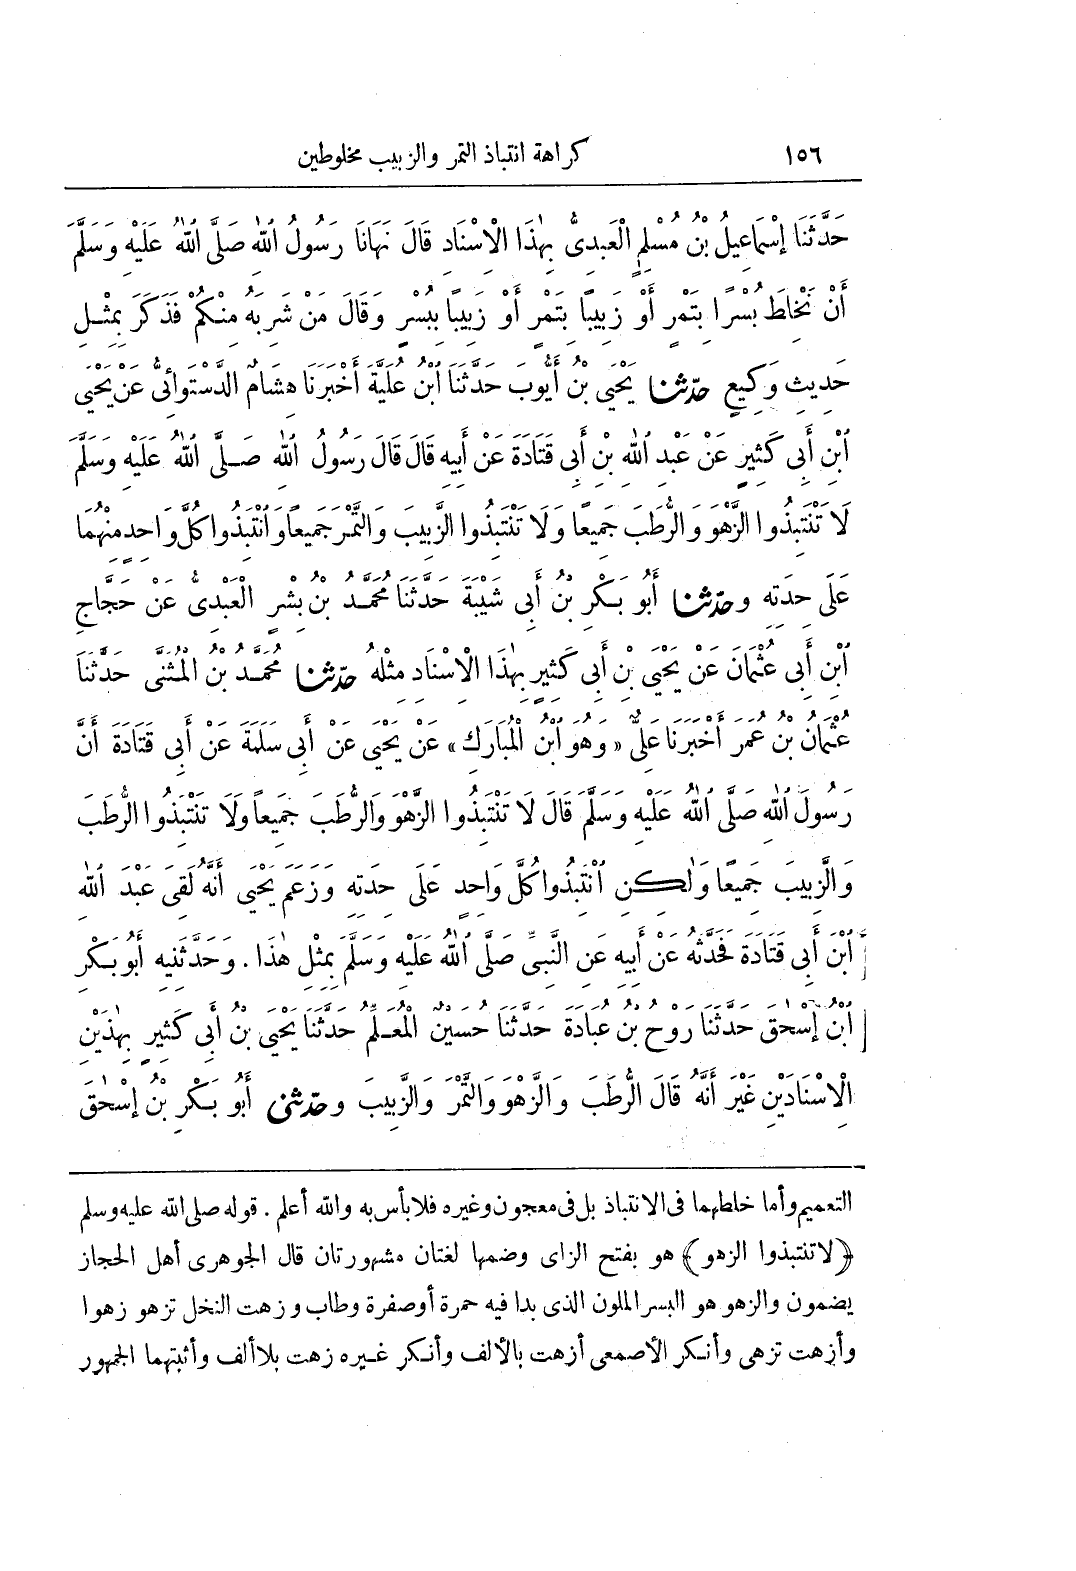 ١٥٦ كراهة انتباذ التمر والزبيب مخلوطين
حَدَّثَنَا إِسْمَاعِيلُ بْنُ مُسْلِمٍ الْعَبْدِىُّ بِهٰذَا الْاِسْنَادِ قَالَ نَهَانَا رَسُولُ اللهِ صَلَّى اللهُ عَلَيْهِ وَسَلَّمَ
أَنْ نَخْلِطَ بُسْرًا بِتَمْرٍ أَوْ زَبِيبًا بِتَمْرٍ أَوْ زَبِيبًا بِبُسْرٍ وَقَالَ مَنْ شَرِبَهُ مِنْكُمْ فَذَكَرَ بِمِثْلِ
حَدِيثِ وَكِيعٍ حدّثنا يَحْيَى بْنُ أَيُّوبَ حَدَّثَنَا ابْنُ عُلَيَّةَ أَخْبَرَنَا هِشَامٌ الدَّسْتَوَائِىُّ عَنْ يَحْيَى
ابْنِ أَبِى كَثِيرٍ عَنْ عَبْدِ اللهِ بْنِ أَبِى قَتَادَةَ عَنْ أَبِيهِ قَالَ قَالَ رَسُولُ اللهِ صَلَّى اللهُ عَلَيْهِ وَسَلَّمَ
لَا تَنْتَبِذُوا الزَّهْوَ وَالرُّطَبَ جَمِيعًا وَلَا تَنْتَبِذُوا الزَّبِيبَ وَالتَّمْرَ جَمِيعًا وَانْتَبِذُوا كُلَّ وَاحِدٍ مِنْهُمَا
عَلَى حِدَتِهِ وحدّثنا أَبُو بَكْرِ بْنُ أَبِى شَيْبَةَ حَدَّثَنَا مُحَمَّدُ بْنُ بِشْرٍ الْعَبْدِىُّ عَنْ حَجَّاجِ
ابْنِ أَبِى عُثْمَانَ عَنْ يَحْيَى بْنِ أَبِى كَثِيرٍ بِهٰذَا الْاِسْنَادِ مِثْلَهُ حدّثنا مُحَمَّدُ بْنُ الْمُثَنَّى حَدَّثَنَا
عُثْمَانُ بْنُ عُمَرَ أَخْبَرَنَا عَلِىٌّ «وَهُوَ ابْنُ الْمُبَارَكِ» عَنْ يَحْيَى عَنْ أَبِى سَلَمَةَ عَنْ أَبِى قَتَادَةَ أَنَّ
رَسُولَ اللهِ صَلَّى اللهُ عَلَيْهِ وَسَلَّمَ قَالَ لَا تَنْتَبِذُوا الزَّهْوَ وَالرُّطَبَ جَمِيعًا وَلَا تَنْتَبِذُوا الرُّطَبَ
وَالزَّبِيبَ جَمِيعًا وَلٰكِنِ انْتَبِذُوا كُلَّ وَاحِدٍ عَلَى حِدَتِهِ وَزَعَمَ يَحْيَى أَنَّهُ لَقِىَ عَبْدَ اللهِ
ابْنَ أَبِى قَتَادَةَ فَحَدَّثَهُ عَنْ أَبِيهِ عَنِ النَّبِىِّ صَلَّى اللهُ عَلَيْهِ وَسَلَّمَ بِمِثْلِ هٰذَا . وَحَدَّثَنِيهِ أَبُو بَكْرِ
ابْنُ إِسْحٰقَ حَدَّثَنَا رَوْحُ بْنُ عُبَادَةَ حَدَّثَنَا حُسَيْنٌ الْمُعَلِّمُ حَدَّثَنَا يَحْيَى بْنُ أَبِى كَثِيرٍ بِهٰذَيْنِ
الْاِسْنَادَيْنِ غَيْرَ أَنَّهُ قَالَ الرُّطَبَ وَالزَّهْوَ وَالتَّمْرَ وَالزَّبِيبَ وحدّثنى أَبُو بَكْرِ بْنُ إِسْحٰقَ
التعميم وأما خلطهما فى الانتباذ بل فى معجون وغيره فلا بأس به والله أعلم . قوله صلى الله عليه وسلم
﴿لا تنتبذوا الزهو﴾ هو بفتح الزاى وضمها لغتان مشهورتان قال الجوهرى أهل الحجاز
يضمون والزهو هو البسر الملون الذى بدا فيه حمرة أو صفرة وطاب وزهت النخل تزهو زهوا
وأزهت تزهى وأنكر الأصمعى أزهت بالألف وأنكر غيره زهت بلا ألف وأثبتهما الجمهور